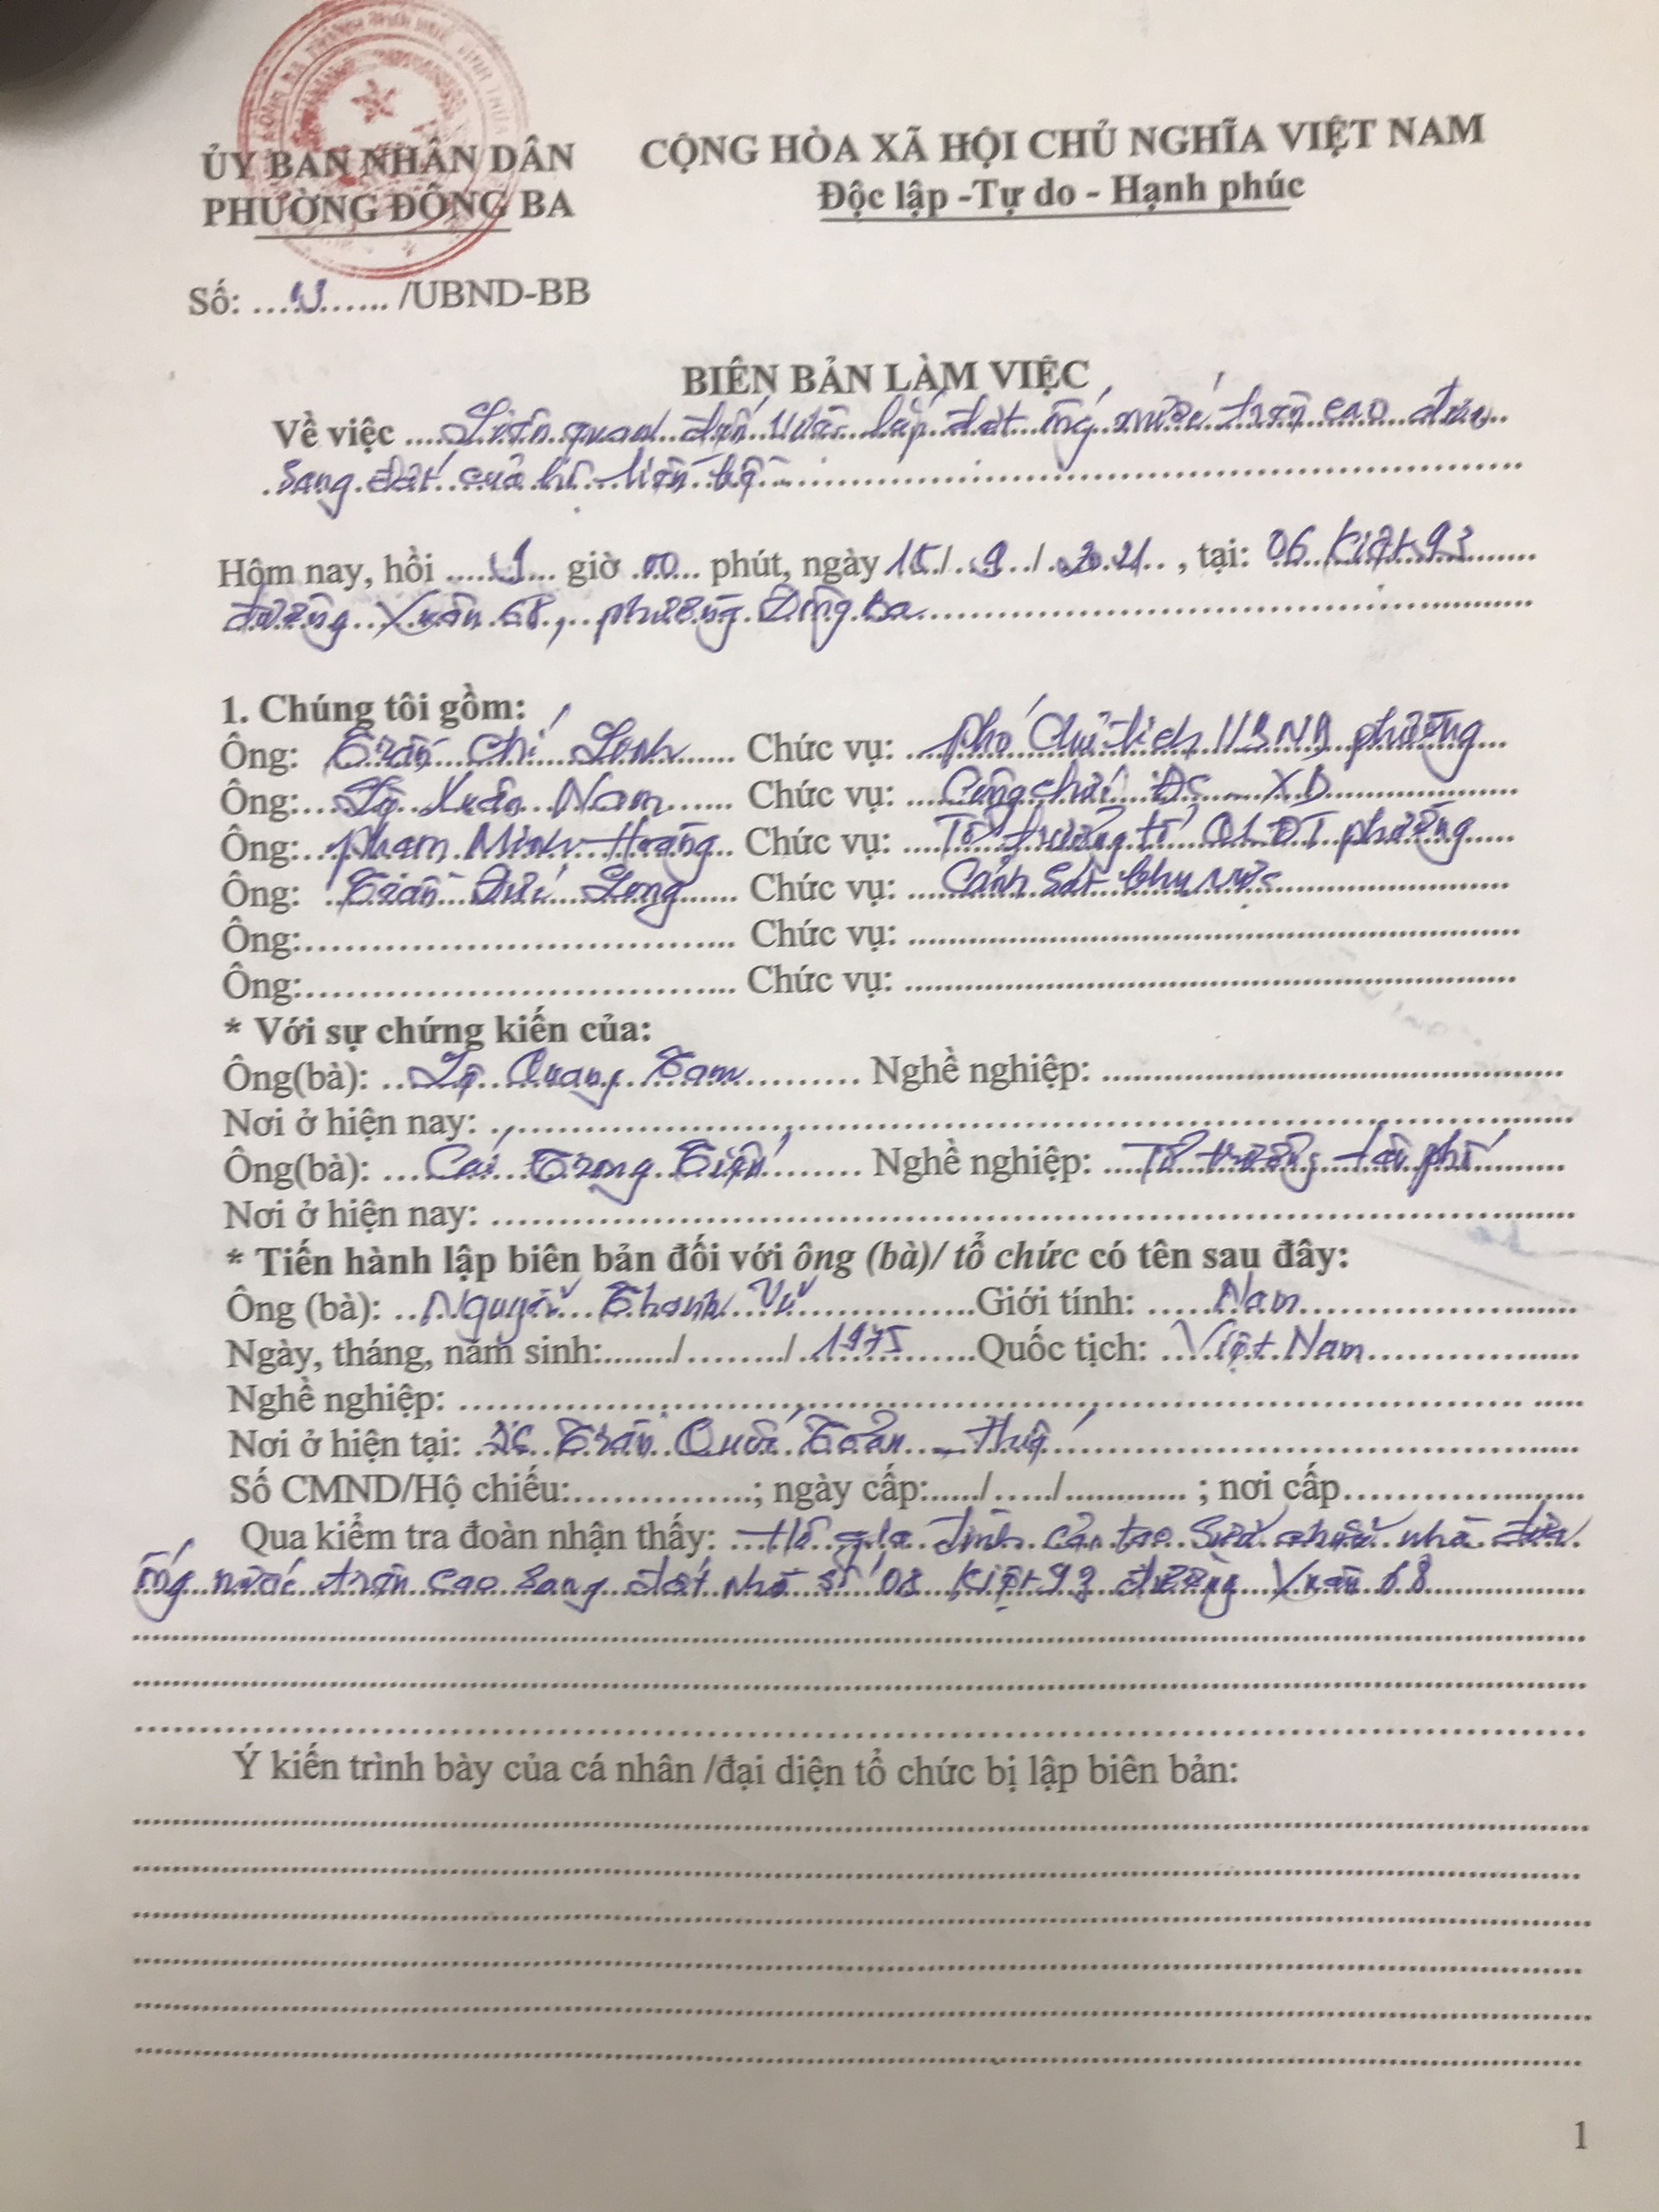 ỦY BAN NHÂN DÂN
PHƯỜNG ĐÔNG BA
CỘNG HÒA XÃ HỘI CHỦ NGHĨA VIỆT NAM
Độc lập -Tự do - Hạnh phúc
Số: ............ /UBND-BB
BIÊN BẢN LÀM VIỆC
Về việc ....Liên quan đến việc lắp đặt ống nước trên cao đưa
sang đất của hộ liền kề
Hôm nay, hồi .....9... giờ .00... phút, ngày 15/.9../.2021.. , tại: 06 Kiệt 93
đường Xuân 68, phường Đông Ba
1. Chúng tôi gồm:
Ông: Trần Chí Linh...... Chức vụ: ...Phó Chủ tịch UBND phường
Ông:...Lê Xuân Nam...... Chức vụ: ....Công chức ĐC - XD
Ông:...Phạm Minh Hoàng.. Chức vụ: ...Tổ trưởng tổ QLĐT phường
Ông: Trần Đức Long...... Chức vụ: ....Cảnh sát khu vực
Ông:................................... Chức vụ: ............................................
Ông:................................... Chức vụ: ............................................
* Với sự chứng kiến của:
Ông(bà): ..Lê Quang Tam.......... Nghề nghiệp: .................................
Nơi ở hiện nay: ..........................................................................
Ông(bà): ...Cái Trọng Tiến........ Nghề nghiệp: ...Tổ trưởng dân phố
Nơi ở hiện nay: ..........................................................................
* Tiến hành lập biên bản đối với ông (bà)/ tổ chức có tên sau đây:
Ông (bà): ..Nguyễn Thanh Vũ...............Giới tính: ......Nam....................
Ngày, tháng, năm sinh:......./......../.1975.......Quốc tịch: ....Việt Nam..................
Nghề nghiệp: ..............................................................................
Nơi ở hiện tại: Trần Quốc Toản - Huế
Số CMND/Hộ chiếu:................; ngày cấp:....../...../............ ; nơi cấp.....................
Qua kiểm tra đoàn nhận thấy: Hộ gia đình cải tạo sửa chữa nhà đưa
ống nước trên cao sang đất nhà số 08 Kiệt 93 đường Xuân 68
Ý kiến trình bày của cá nhân /đại diện tổ chức bị lập biên bản:
1